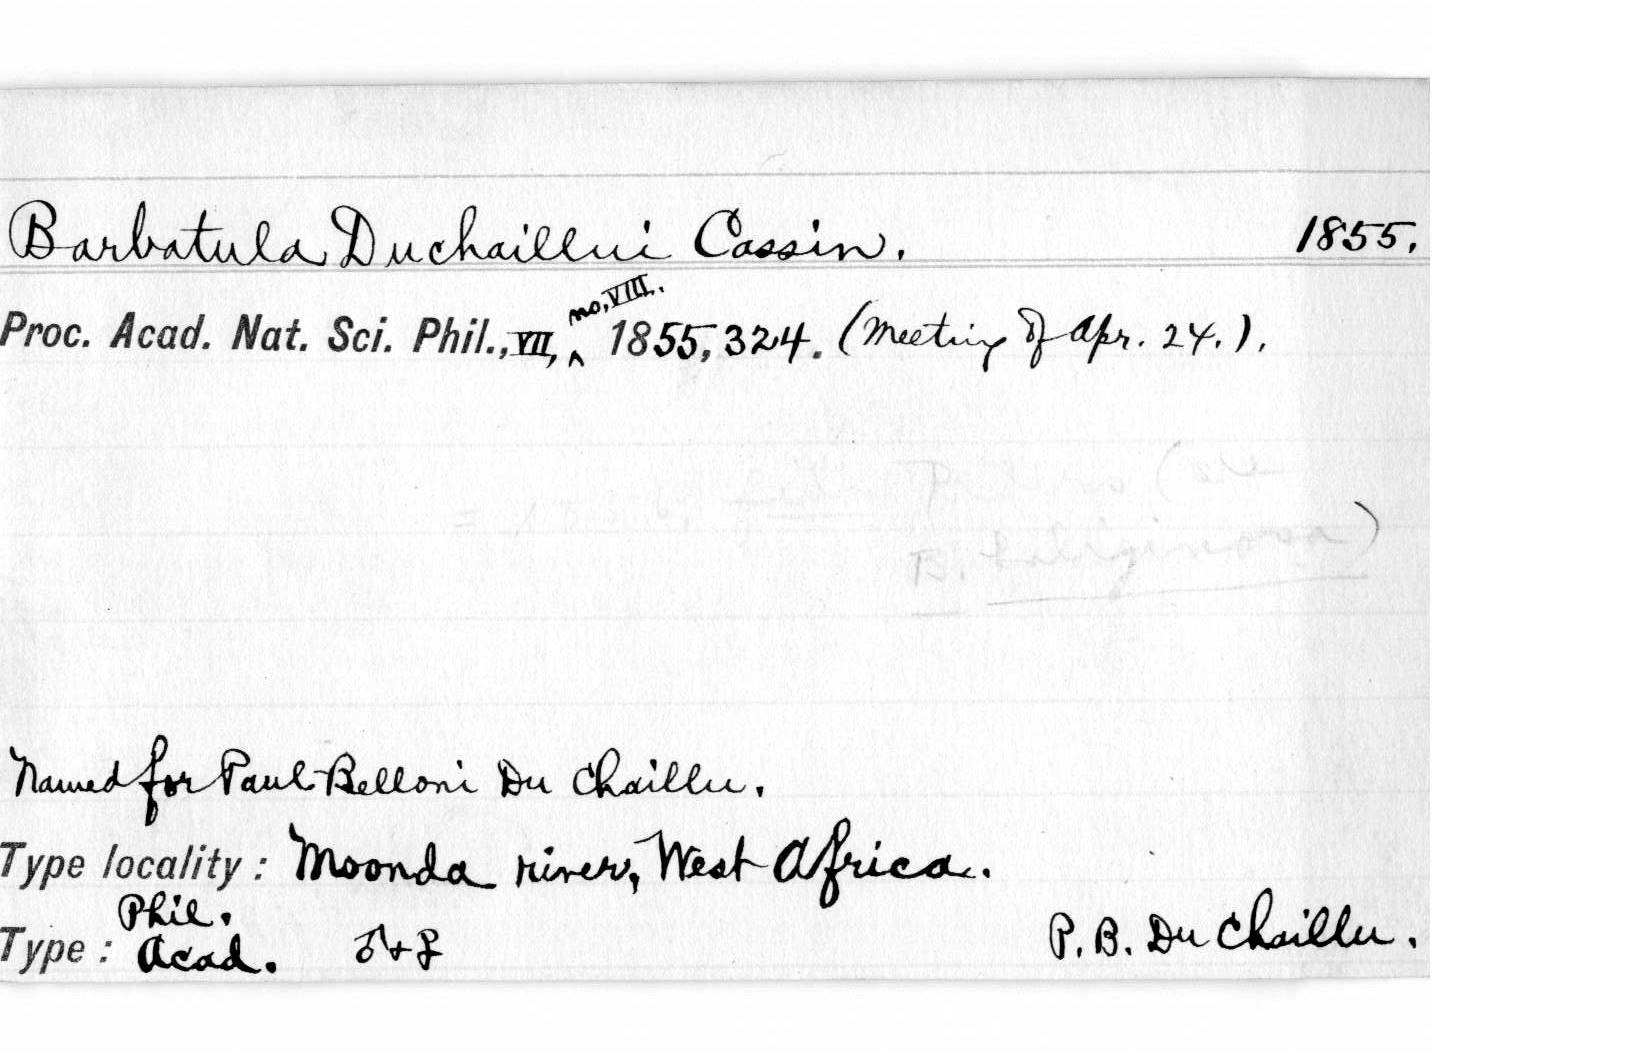 Barbatula Duchaillui Cassin. 1855.
Proc. Acad. Nat. Sci. Phil., VII, no. VIII. 1855, 324. (Meeting of Apr. 24.).
Named for Paul Belloni Du Chaillu.
Type locality: Moonda river, West Africa.
Phil.
Type: Acad. ♂ + ♀ P. B. Du Chaillu.